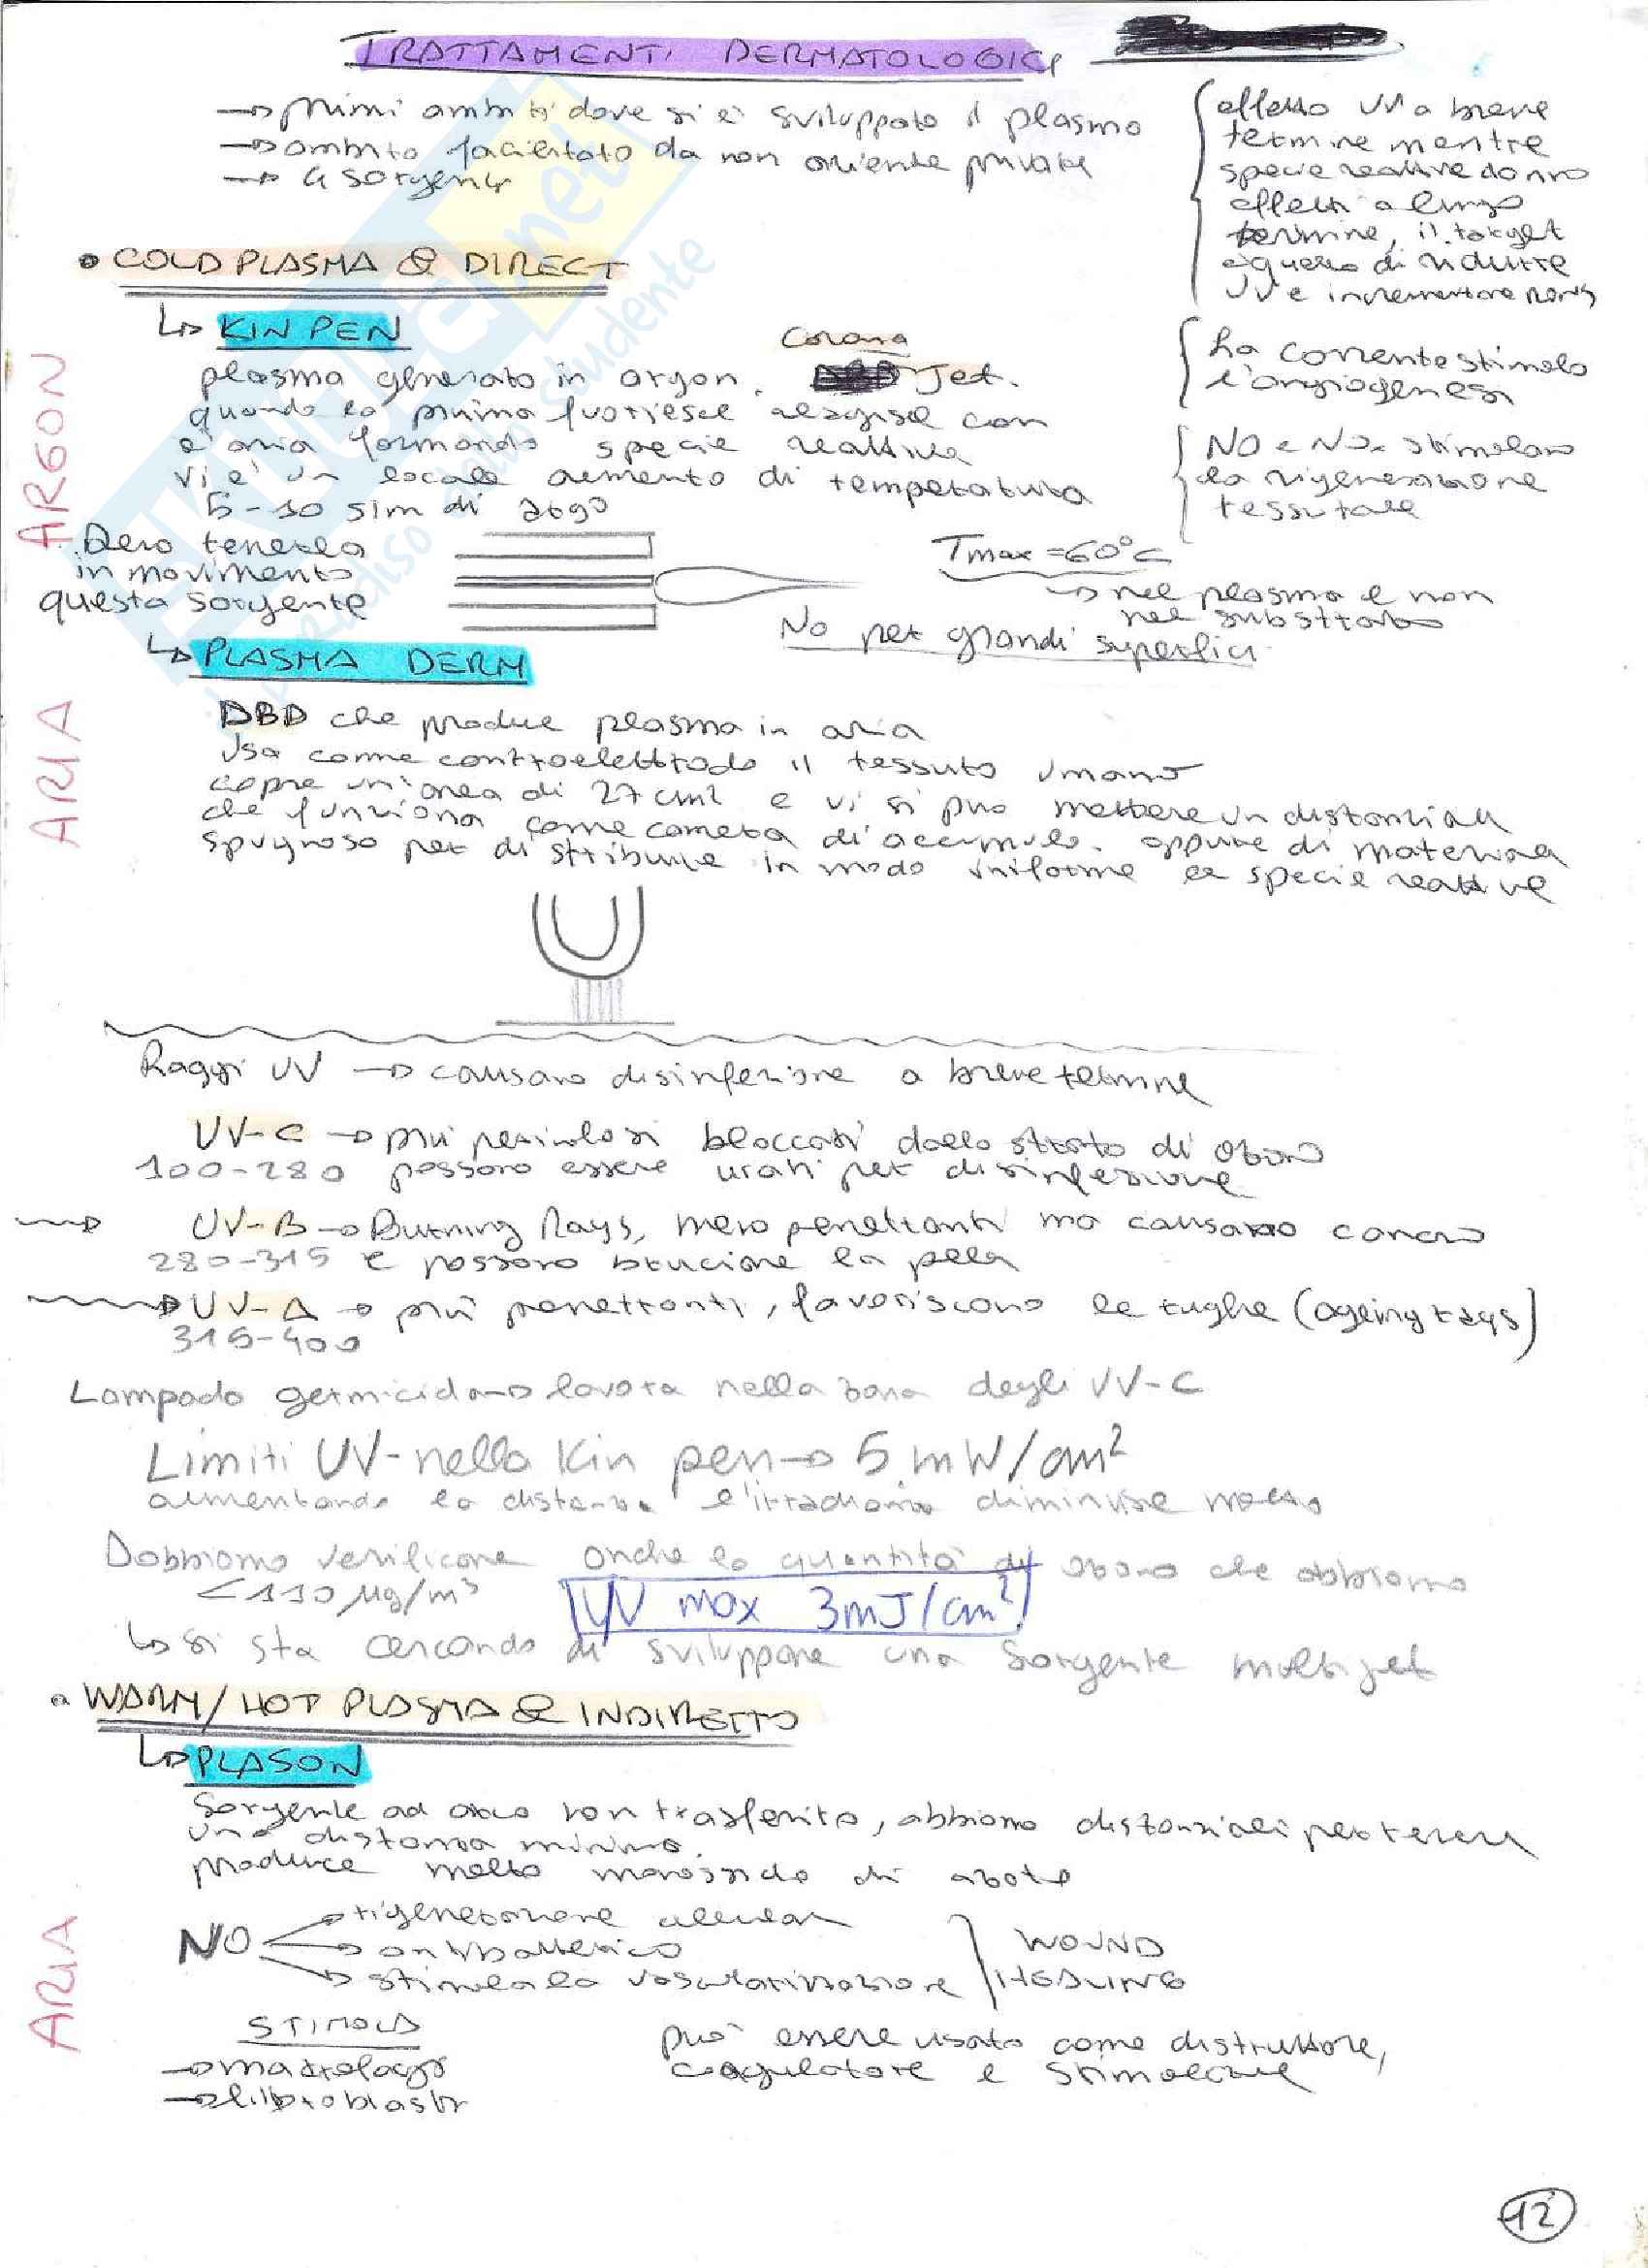 TRATTAMENTI DERMATOLOGICI
→ primi ambiti dove si è sviluppato il plasma
→ ambito facilitato da non oriente private
→ 4 sorgenti
effetto UV a breve
termine mentre
specie reattive danno
effetti a lungo
termine, il target
è quello di ridurre
UV e incrementare RONS
• COLD PLASMA & DIRECT
↳ KIN PEN
ARGON
Corona
plasma generato in argon. Jet.
quando la piuma fuoriesce reagisce con
l'aria formando specie reattive
vi è un locale aumento di temperatura
5-10 slm di
la corrente stimola
l'angiogenesi
NO e NOx stimolano
la rigenerazione
tessutale
Devo tenerla
in movimento
questa sorgente
Tmax = 60°C
→ nel plasma e non
nel substrato
No per grandi superfici
↳ PLASMA DERM
ARIA
DBD che produce plasma in aria
Usa come controelettrodo il tessuto umano
copre un'area di 27 cm² e vi si può mettere un distanziale
che funziona come camera di accumulo. oppure di materiale
spugnoso per distribuire in modo uniforme le specie reattive
Raggi UV → causano disinfezione a breve termine
UV-C → più pericolosi bloccati dallo strato di ozono
100-280 possono essere usati per disinfezione
UV-B → Burning Rays, meno penetranti ma causano cancro
280-315 e possono bruciare la pelle
UV-A → più penetranti, favoriscono le rughe (ageing rays)
315-400
Lampada germicida → lavora nella zona degli UV-C
Limiti UV-nella Kin pen → 5 mW/cm²
aumentando la distanza l'irradianza diminuisce molto
Dobbiamo verificare anche la quantità di ozono che abbiamo
<110 µg/m³
UV max 3mJ/cm²
↳ si sta cercando di sviluppare una sorgente multijet
• WARM/HOT PLASMA & INDIRETTO
↳ PLASON
Sorgente ad arco non trasferito, abbiamo distanziali per tenere
una distanza minima.
produce molto monossido di azoto
ARIA
NO
→ rigenerazione cellulare
→ antibatterico
→ stimola la vascolarizzazione
WOUND
HEALING
STIMOLA
→ macrofagi
→ fibroblasti
può essere usato come distruttore,
coagulatore e stimolatore
12